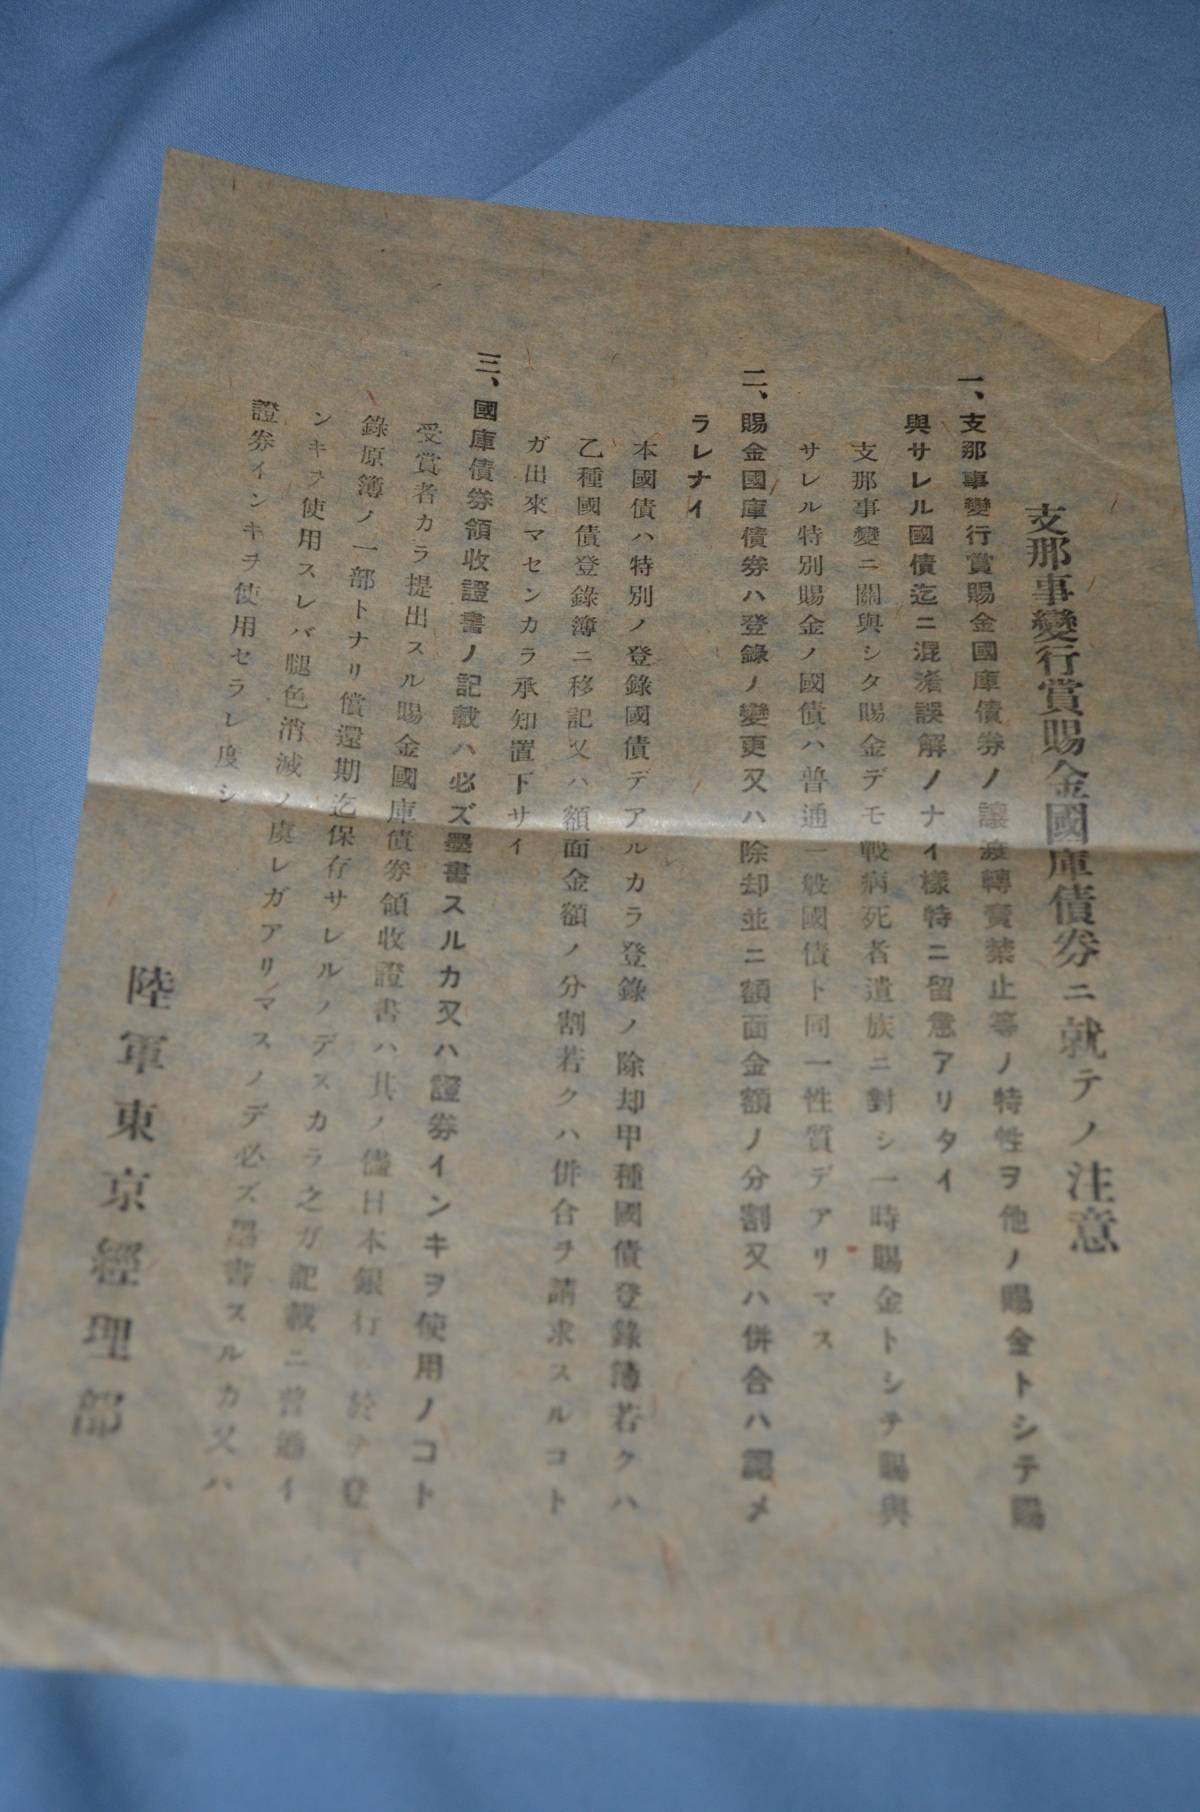 支那事變行賞賜金國庫債券ニ就テノ注意
一、支那事變行賞賜金國庫債券ノ讓渡轉賣禁止等ノ特性ヲ他ノ賜金トシテ賜
與サレル國債迄ニ混淆誤解ノナイ樣特ニ留意アリタイ
支那事變ニ關與シタ賜金デモ戰病死者遺族ニ對シ一時賜金トシテ賜與
サレル特別賜金ノ國債ハ普通一般國債ト同一性質デアリマス
二、賜金國庫債券ハ登錄ノ變更又ハ除却並ニ額面金額ノ分割又ハ併合ハ認メ
ラレナイ
本國債ハ特別ノ登錄國債デアルカラ登錄ノ除却甲種國債登錄簿若クハ
乙種國債登錄簿ニ移記又ハ額面金額ノ分割若クハ併合ヲ請求スルコト
ガ出來マセンカラ承知置下サイ
三、國庫債券領收證書ノ記載ハ必ズ墨書スルカ又ハ證券インキヲ使用ノコト
受賞者カラ提出スル賜金國庫債券領收證書ハ其ノ儘日本銀行ニ於テ登
錄原簿ノ一部トナリ償還期迄保存サレルノデスカラ之ガ記載ニ普通イ
ンキヲ使用スレバ腿色消滅ノ虞レガアリマスノデ必ズ墨書スルカ又ハ
證券インキヲ使用セラレ度シ
陸軍東京經理部